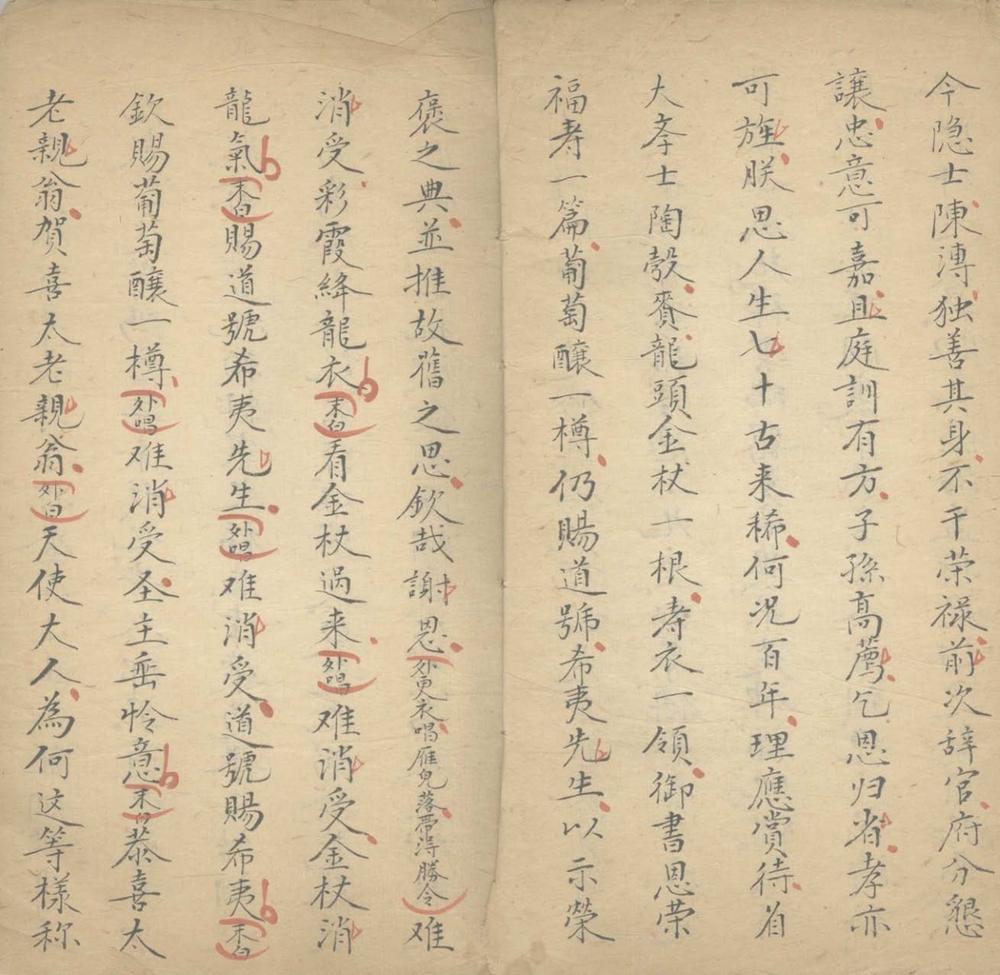 今隐士陳漙独善其身不干荣禄前次辞官府分懇
讓忠意可嘉且庭訓有方子孫高薦乞恩归省孝亦
可旌朕思人生七十古来稀何况百年理應賞待省
大孝士陶穀賫龍頭金杖一根寿衣一領御書恩荣
福寿一篇葡萄釀一樽仍賜道號希夷先生以示榮
褒之典並推故舊之思欽哉謝恩外更衣唱雁兒落帶得勝令难
消受彩霞絳龍衣末白看金杖過来外唱难消受金杖消
龍氣末白賜道號希夷先生外唱难消受道號賜希夷末白
欽賜葡萄釀一樽外唱难消受圣主垂怜意末白恭喜太
老親翁賀喜太老親翁外白天使大人為何这等樣称